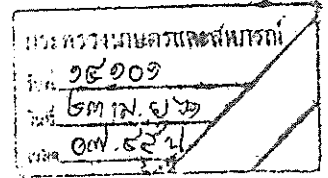 กระทรวงเกษตรและสหกรณ์
รับที่ ๑๕๑๐๑
วันที่ ๒๓ เม.ย
เวลา น.